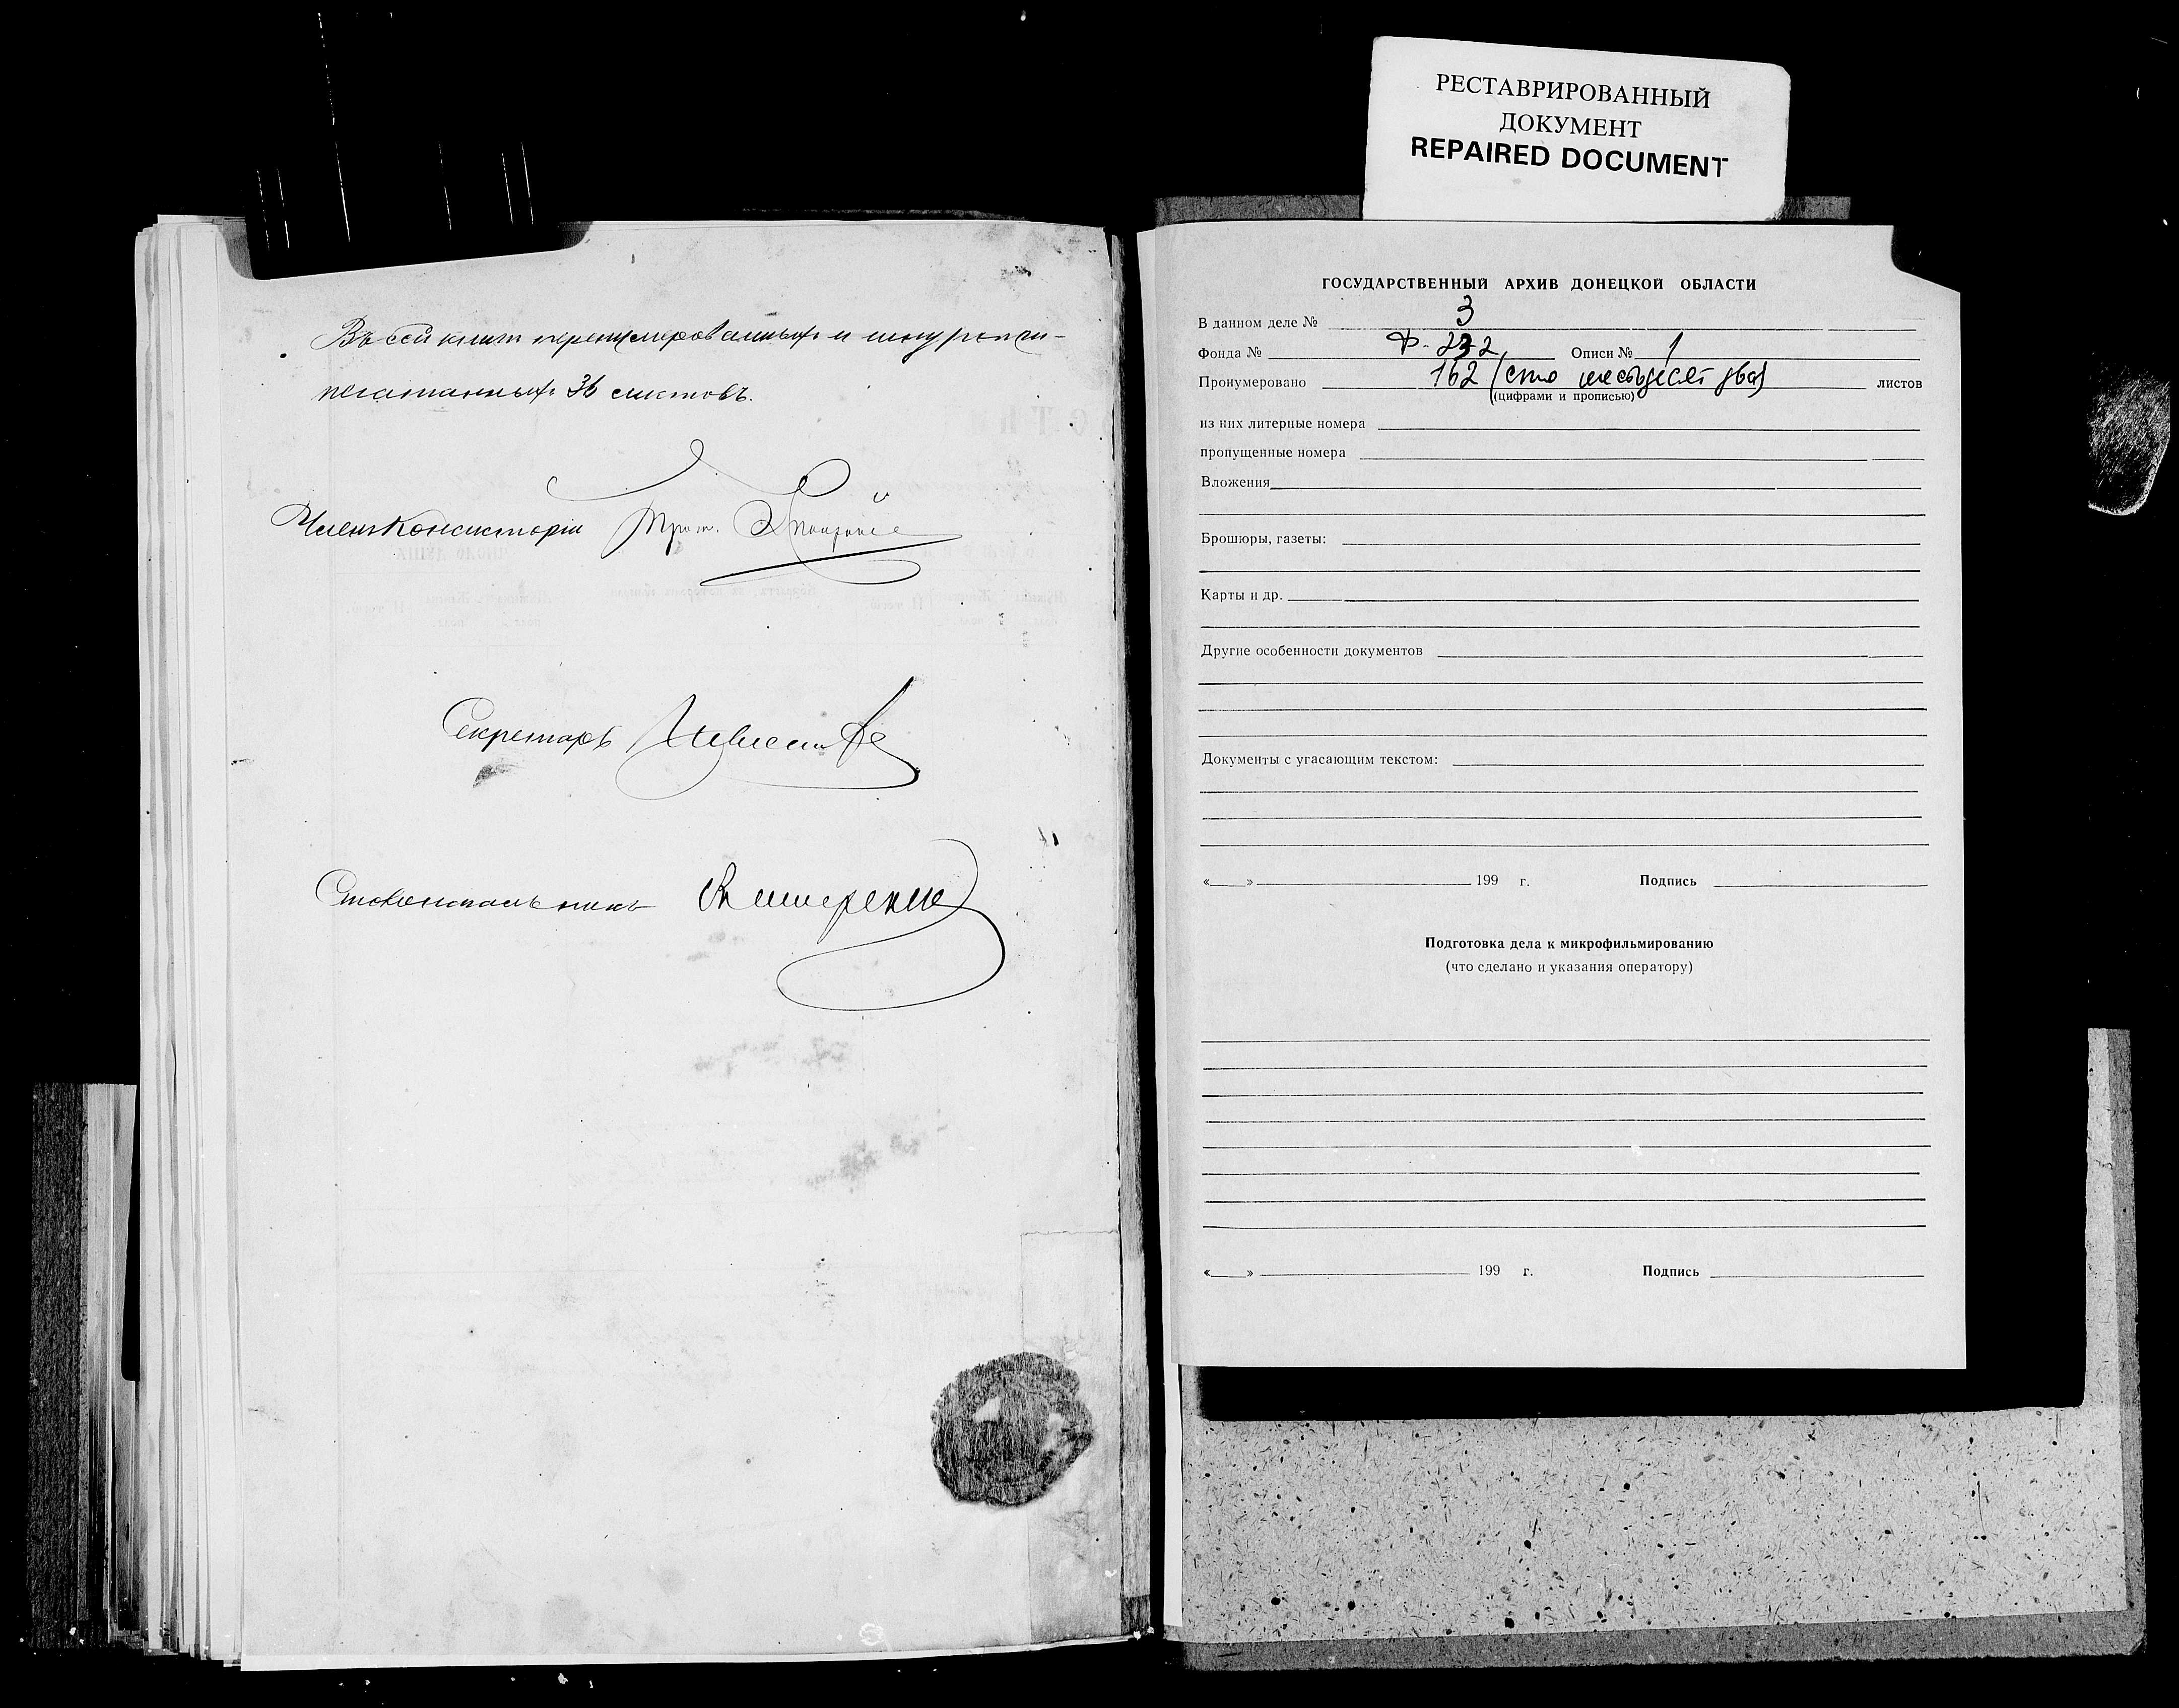 Въ сей книгѣ перенумерованныхъ и шнуропри-
печатанныхъ 36 листовъ.
Членъ Консисторіи Прот.
Секретарь
Столоначальникъ
РЕСТАВРИРОВАННЫЙ
ДОКУМЕНТ
REPAIRED DOCUMENT
ГОСУДАРСТВЕННЫЙ АРХИВ ДОНЕЦКОЙ ОБЛАСТИ
В данном деле № 3
Фонда № Ф-232, Описи № 1
Пронумеровано 162 (сто шестьдесят два) листов
(цифрами и прописью)
из них литерные номера
пропущенные номера
Вложения
Брошюры, газеты:
Карты и др.
Другие особенности документов
Документы с угасающим текстом:
«___» 199 г. Подпись
Подготовка дела к микрофильмированию
(что сделано и указания оператору)
«___» 199 г. Подпись